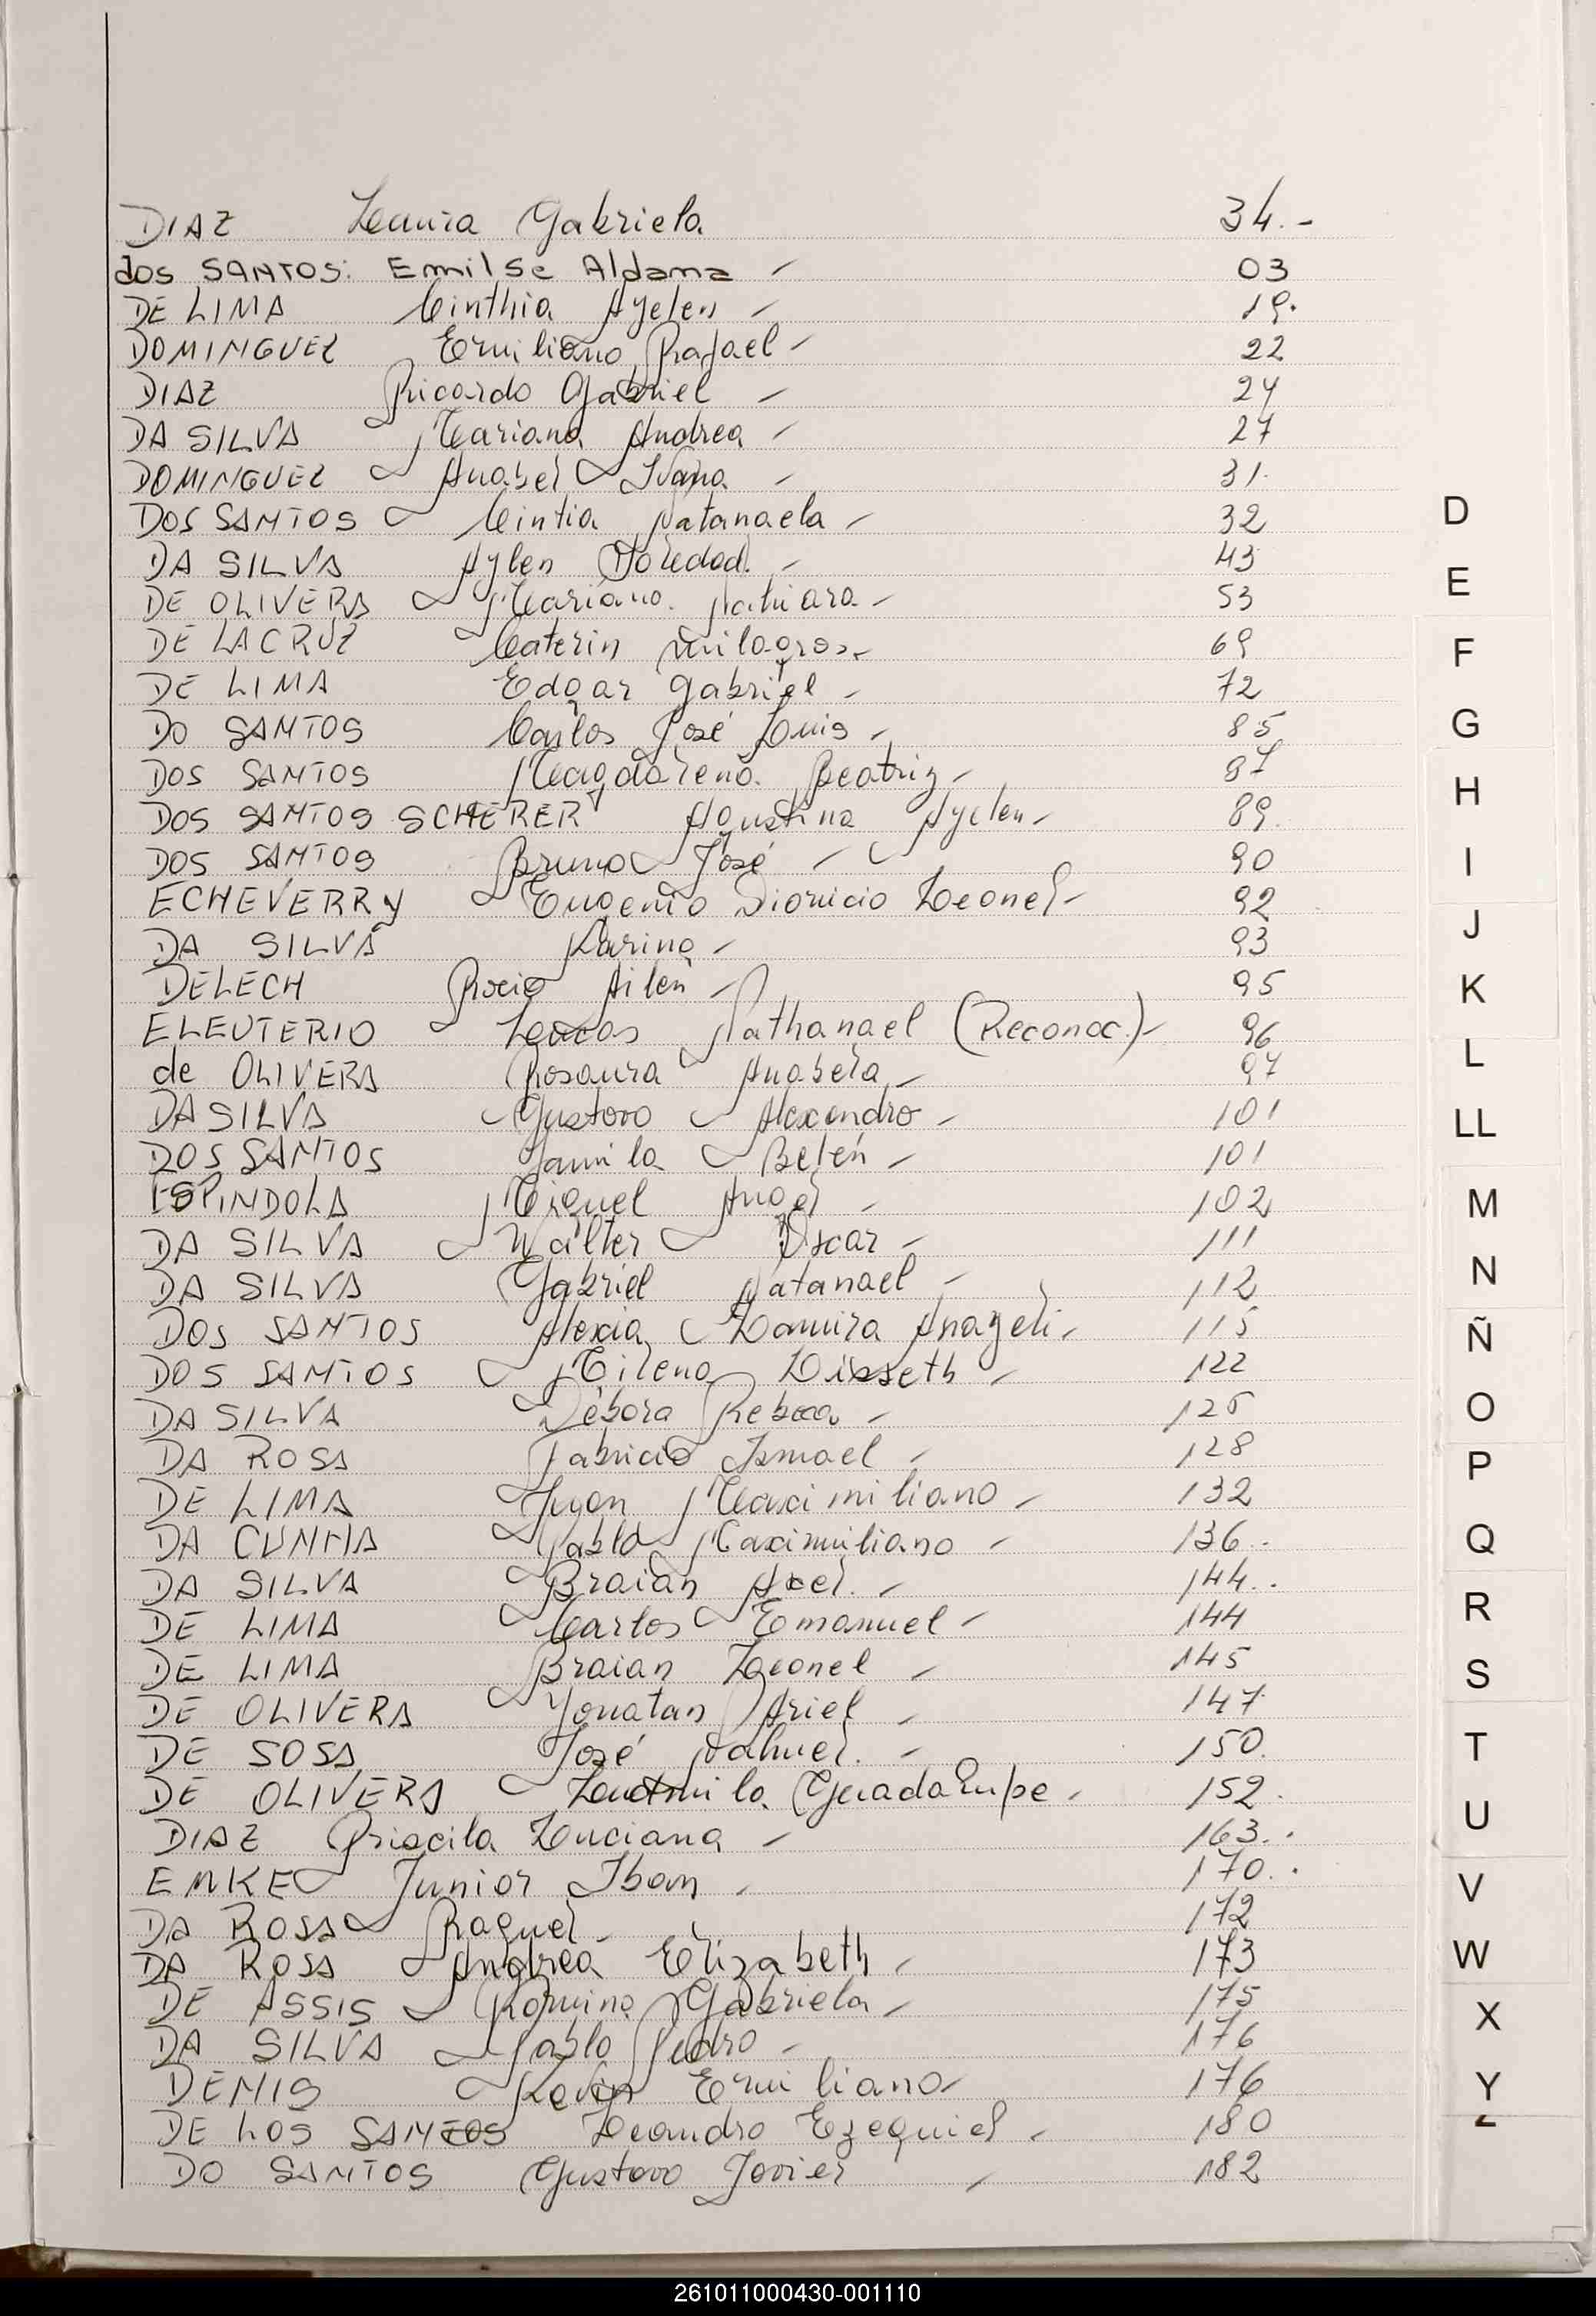 DIAZ Laura Gabriela 34.-
dos SANTOS: Emilse Aldama - 03
DE LIMA Cinthia Ayelen - 19.
DOMINGUEZ Emiliano Rafael - 22
DIAZ Ricardo Gabriel - 24
DA SILVA Mariana Andrea - 27
DOMINGUEZ Anabel Ivana - 31.
DOS SANTOS Cintia Natanaela - 32
DA SILVA Aylen Soledad. - 43
DE OLIVERA Mariano. Nahiara - 53
DE LACRUZ Caterin Milagros - 69
DE LIMA Edgar Gabriel - 72
DO SANTOS Carlos José Luis - 85
DOS SANTOS Magdalena. Beatriz - 87
DOS SANTOS SCHERER Agustina Ayelen - 89.
DOS SANTOS Bruno José - 90
ECHEVERRY Eugenio Dionicio Leonel - 92
DA SILVA Karina - 93
DELECH Rocio Ailen - 95
ELEUTERIO Lucas Nathanael (Reconoc.) - 96
de OLIVERA Rosaura Anabela - 97
DA SILVA Gustavo Alexandro - 101
DOS SANTOS Yamila Belén - 101
ESPINDOLA Miguel Angel - 102
DA SILVA Walter Oscar - 111
DA SILVA Gabriel Natanael - 112
DOS SANTOS Alexia Zamira Anageli - 115
DOS SANTOS Milena Lisseth - 122
DA SILVA Débora Rebeca - 125
DA ROSA Fabricio Ismael - 128
DE LIMA Maximiliano - 132
DA CUNHA Pablo Maximiliano - 136.
DA SILVA Braian Axel. - 144..
DE LIMA Carlos Emanuel - 144
DE LIMA Braian Leonel - 145
DE OLIVERA Yonatan Ariel - 147.
DE SOSA José Nahuel. - 150.
DE OLIVERA Ludmila Guadalupe - 152.
DIAZ Priscila Luciana - 163..
EMKE Junior Iban - 170..
DA ROSA Raquel - 172
DA ROSA Andrea Elizabeth - 173
DE ASSIS Romina Gabriela - 175
DA SILVA Pablo Pedro - 176
DENIS Kevin Emiliano - 176
DE LOS SANTOS Leandro Ezequiel - 180
DO SANTOS Gustavo Javier - 182
D
E
F
G
H
I
J
K
L
LL
M
N
Ñ
O
P
Q
R
S
T
U
V
W
X
Y
261011000430-001110